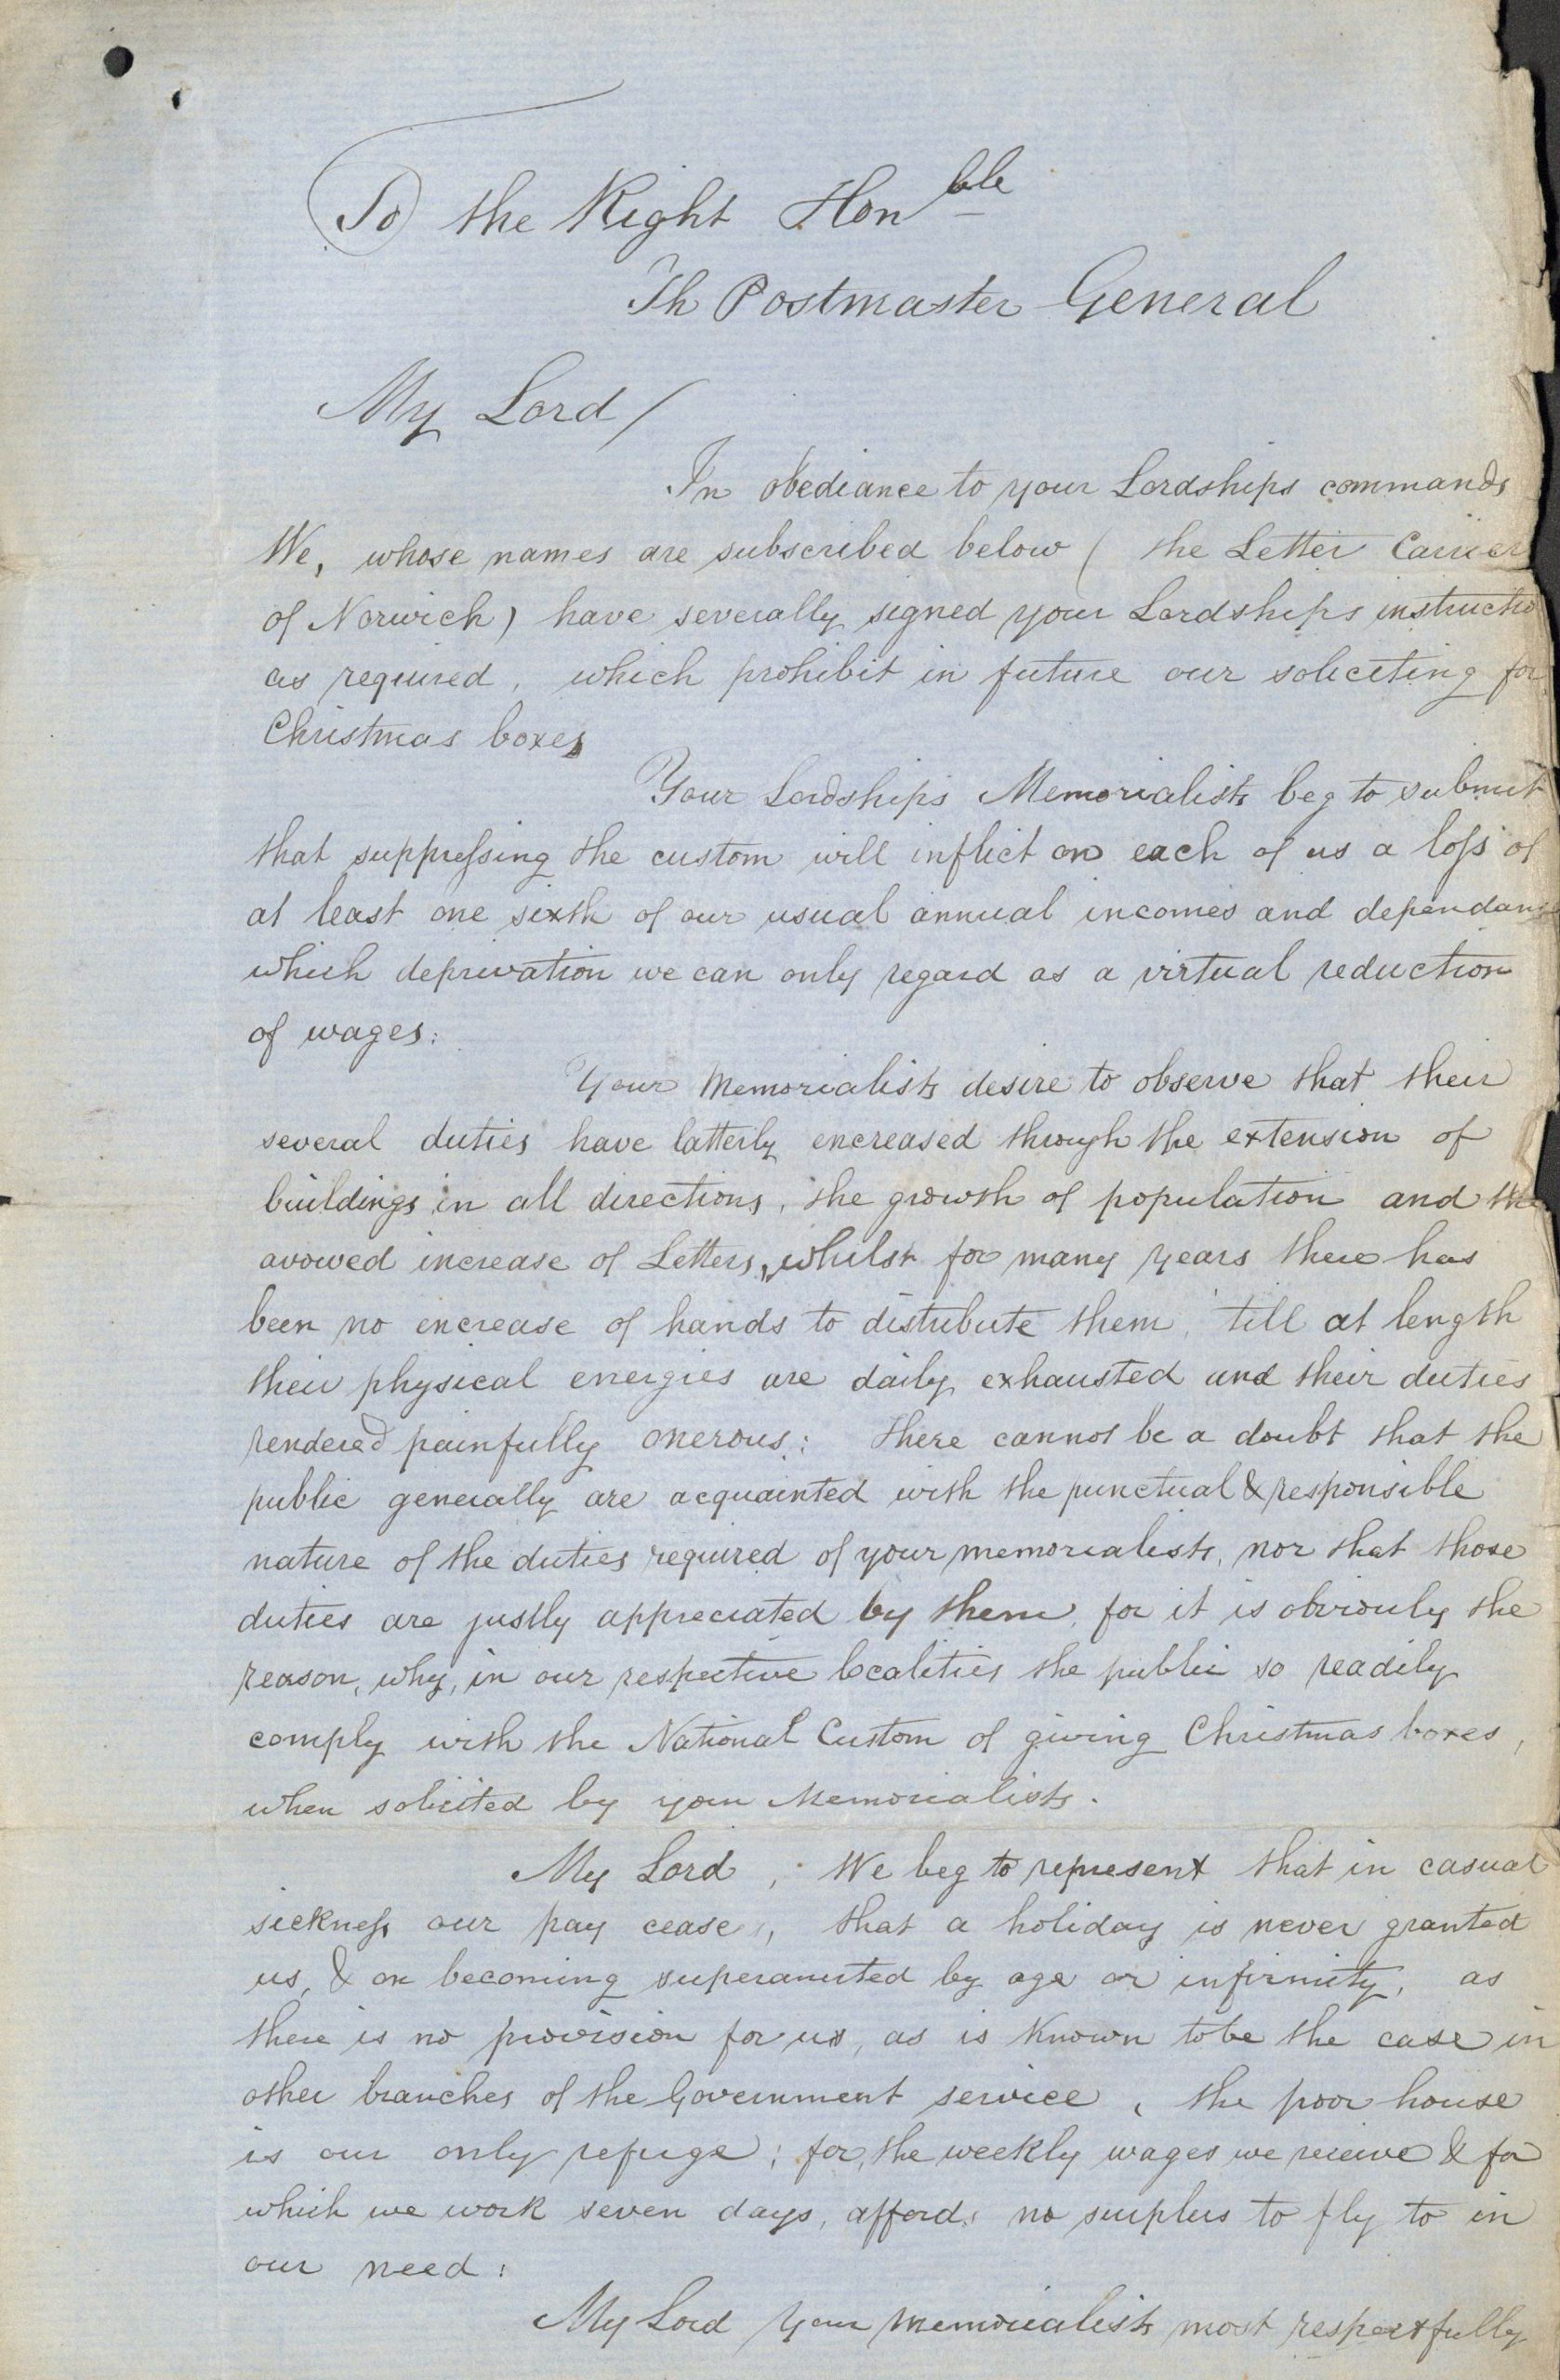 To the Right Honble
Th Postmaster General
My Lord/
In obediance to your Lordships commands
We, whose names are subscribed below ( the Letter Carrier
of Norwich) have severally signed your Lordships instructio
as required, which prohibit in future our soliciting for
Christmas boxes
Your Lordships Memorialists beg to submit
that suppressing the custom will inflict on each of us a loss of
at least one sixth of our usual annual incomes and dependanc
which deprivation we can only regard as a virtual reduction
of wages:
Your Memorialists desire to observe that their
several duties have latterly encreased through the extension of
buildings in all directions, the growth of population and the
avowed increase of Letters, whilst for many years there has
been no encrease of hands to distribute them, 'till at length
their physical energies are daily exhausted and their duties
rendered painfully onerous: there cannot be a doubt that the
public generally are acquainted with the punctual & responsible
nature of the duties required of your memorialists, nor that those
duties are justly appreciated by them, for it is obviouly the
reason, why, in our respective localities the public so readily
comply with the National Custom of giving Christmas boxes,
when solicited by your Memorialists.
My Lord, We beg to represent that in casual
sickness our pay cease, that a holiday is never granted
us, & on becoming superanuted by age or infirmity, as
there is no provision for us, as is known to be the case in
other branches of the Government service, the poor house
is our only refuge; for, the weekly wages we receive & for
which we work seven days, affords no surplus to fly to in
our need:
My Lord your memorialists most respectfully